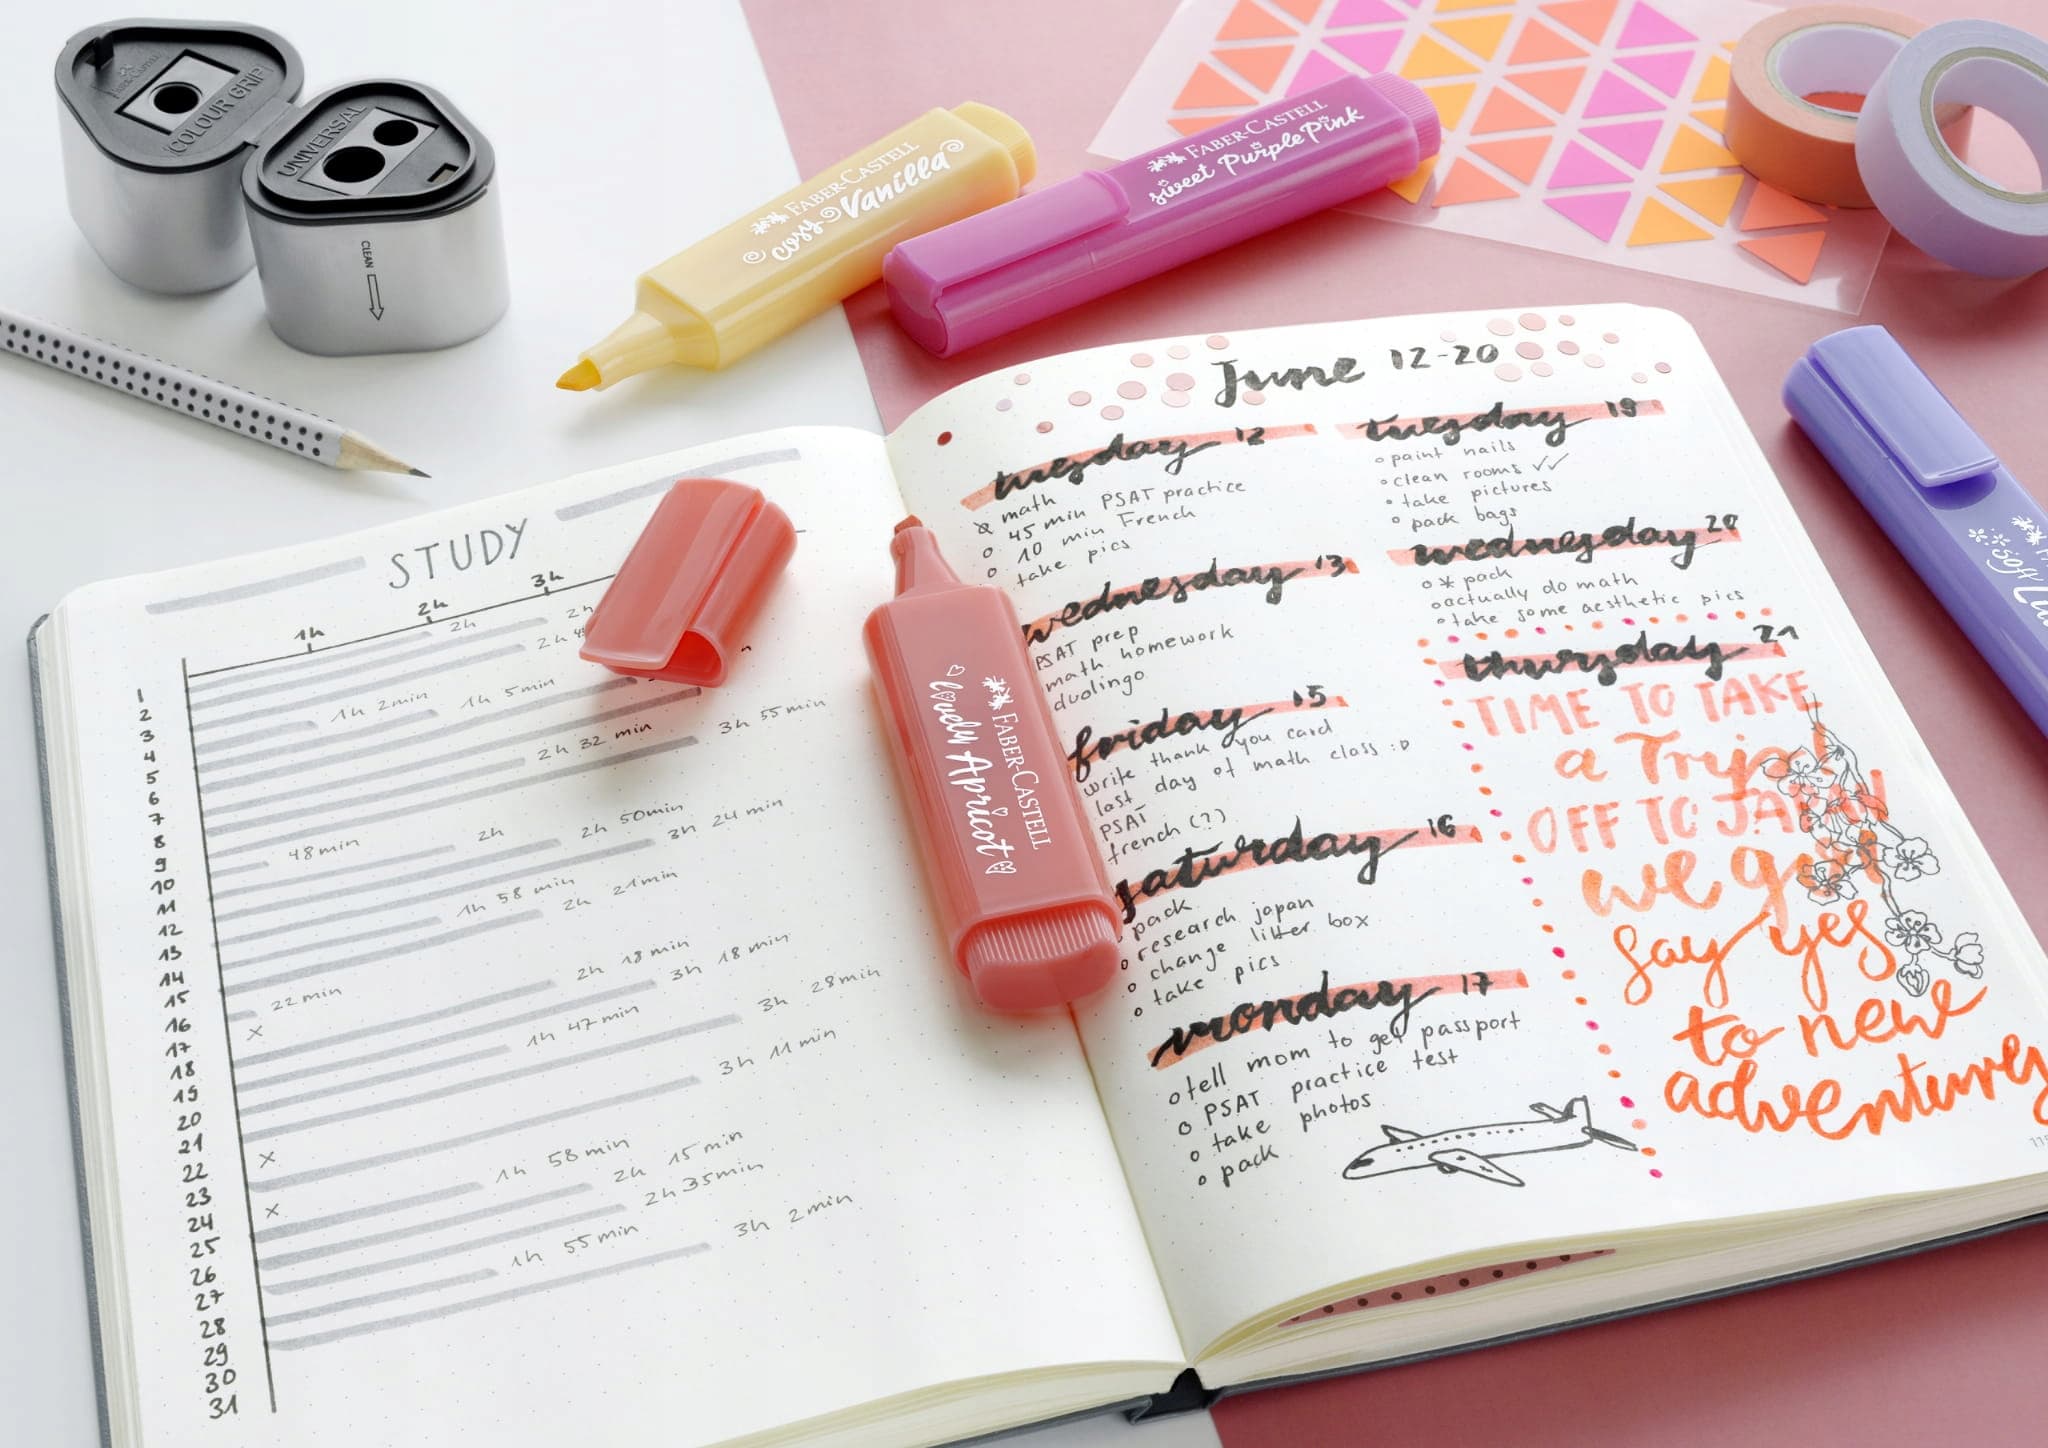 FABER-CASTELL
COLOUR GRIP
UNIVERSAL
CLEAN
FABER-CASTELL
cosy Vanilla
FABER-CASTELL
sweet Purple Pink
soft
FABER-CASTELL
lovely Apricot
STUDY
1h
2h
3h
2h
2h
2h
1h 2min
1h 5min
3h 55min
2h 32 min
48min
2h
2h 50min
3h 24min
1h 58min
2h 21min
22min
2h 18min
3h 18min
x
1h 47min
3h 28min
3h 11min
x
1h 58min
2h 15min
x
2h 35min
1h 55min
3h 2min
1
2
3
4
5
6
7
8
9
10
11
12
13
14
15
16
17
18
19
20
21
22
23
24
25
26
27
28
29
30
31
June 12-20
tuesday 12
math
45 min PSAT practice
10 min French
take pics
wednesday 13
PSAT prep
math homework
duolingo
friday 15
write thank you card
last day of math class :D
PSAT
french (?)
saturday 16
pack
research japan
change litter box
take pics
monday 17
tell mom to get passport
PSAT practice test
take photos
pack
tuesday 19
paint nails
clean rooms ✓✓
take pictures
pack bags
wednesday 20
* pack
actually do math
take some aesthetic pics
thursday 21
TIME TO TAKE
a Trip!
OFF TO JAPAN
we go
say yes
to new
adventures